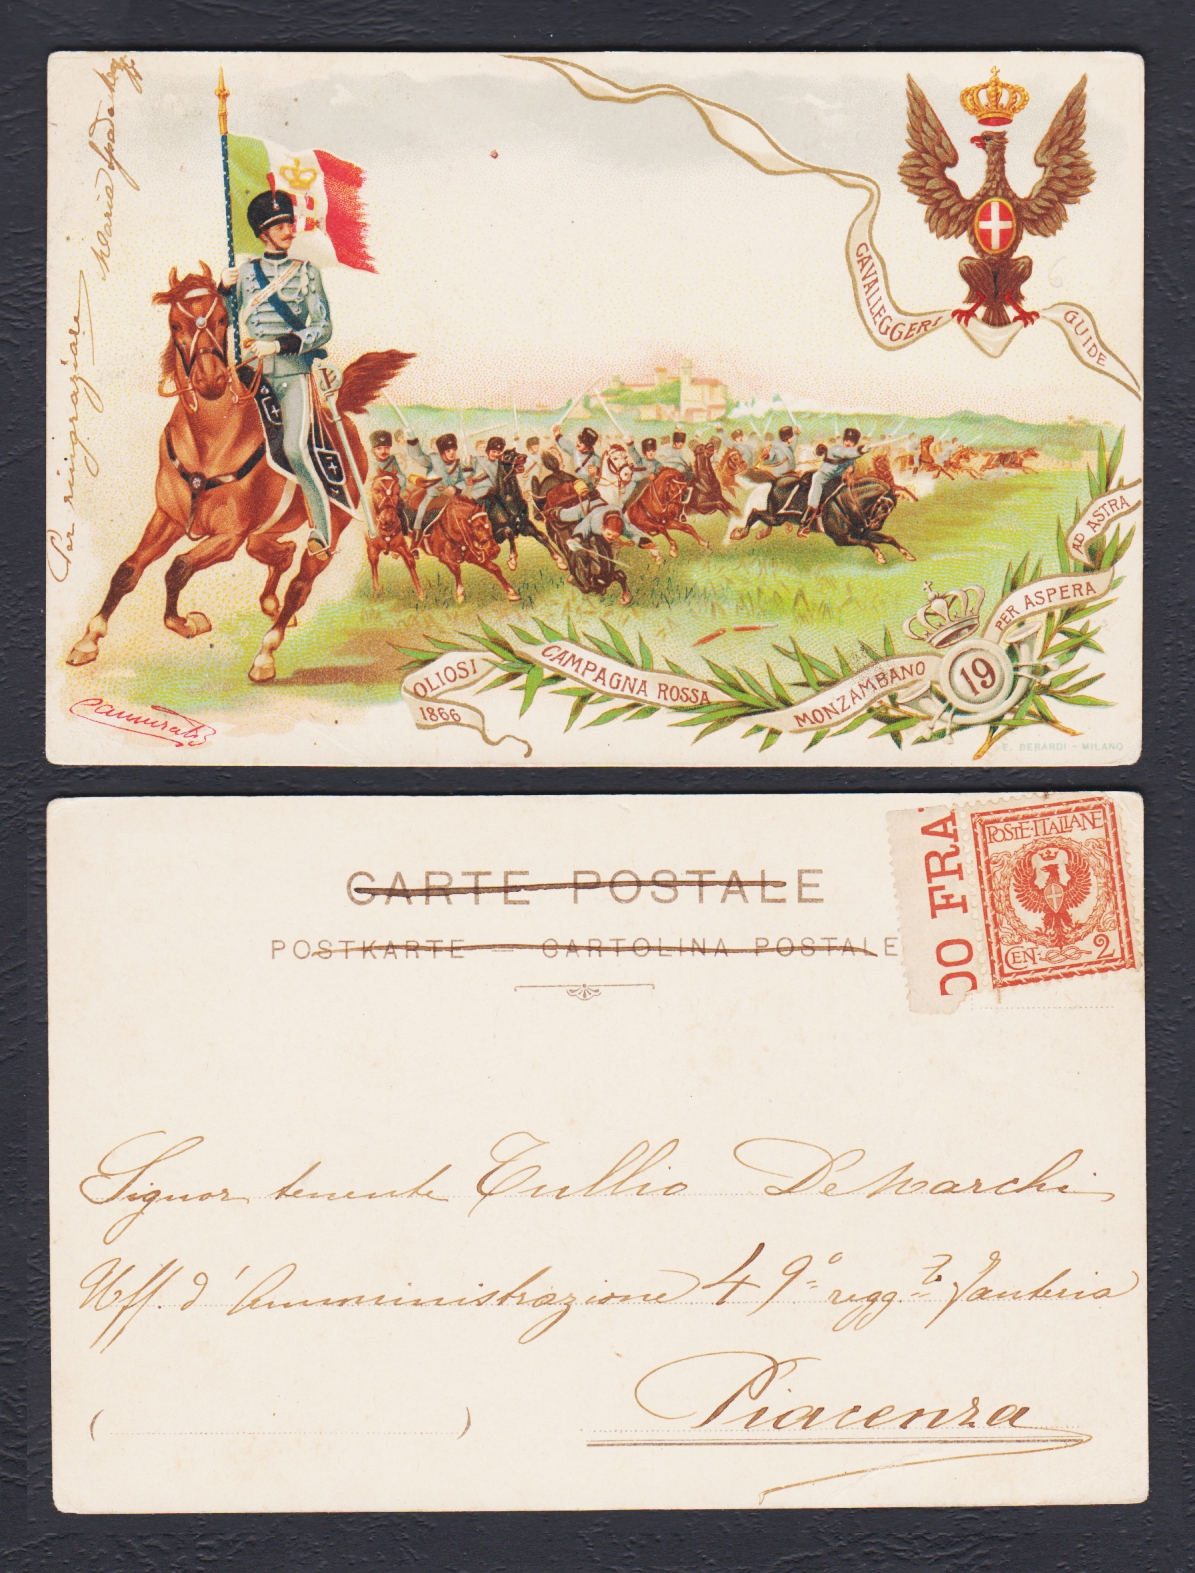 Per ringraziare
Maria
CAVALLEGGERI
GUIDE
AD ASTRA
PER ASPERA
19
MONZAMBANO
CAMPAGNA ROSSA
OLIOSI
1866
E. BERARDI - MILANO
CARTE POSTALE
POSTKARTE — CARTOLINA POSTALE
DO FRA
POSTE·ITALIANE
CEN: 2
Signor tenente Tullio De Marchi
Uff. d'Amministrazione 49° regg. Fanteria
Piacenza
( )